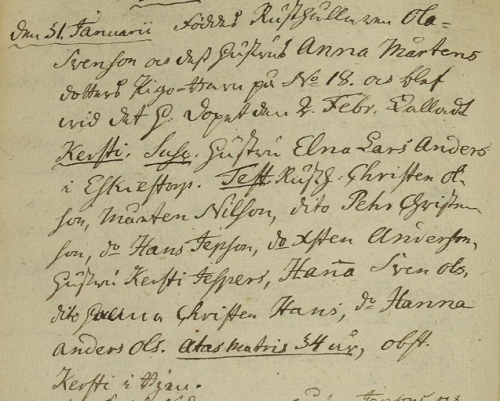 den 31. Januarii föddes Rusthållaren Ola
Svenson och dess hustrus Anna Mårtens
dotters på No 18. och blef
wid det H. Dopet den 2. Febr. Kalladt
Kersti. Susc. hustru Elna Lars Anders
i Eskiestorp. Test. Rusth. Christen Ol-
son, Mårten Nilson, dito Pehr Christen
son, do Hans Jepson, do Xsten Anderson,
hustru Kersti Jeppers, Hanna Sven Ols,
dito Christen Hans, do Hanna
anders Ols. Ætas matris 34 år, obst.
Kersti i